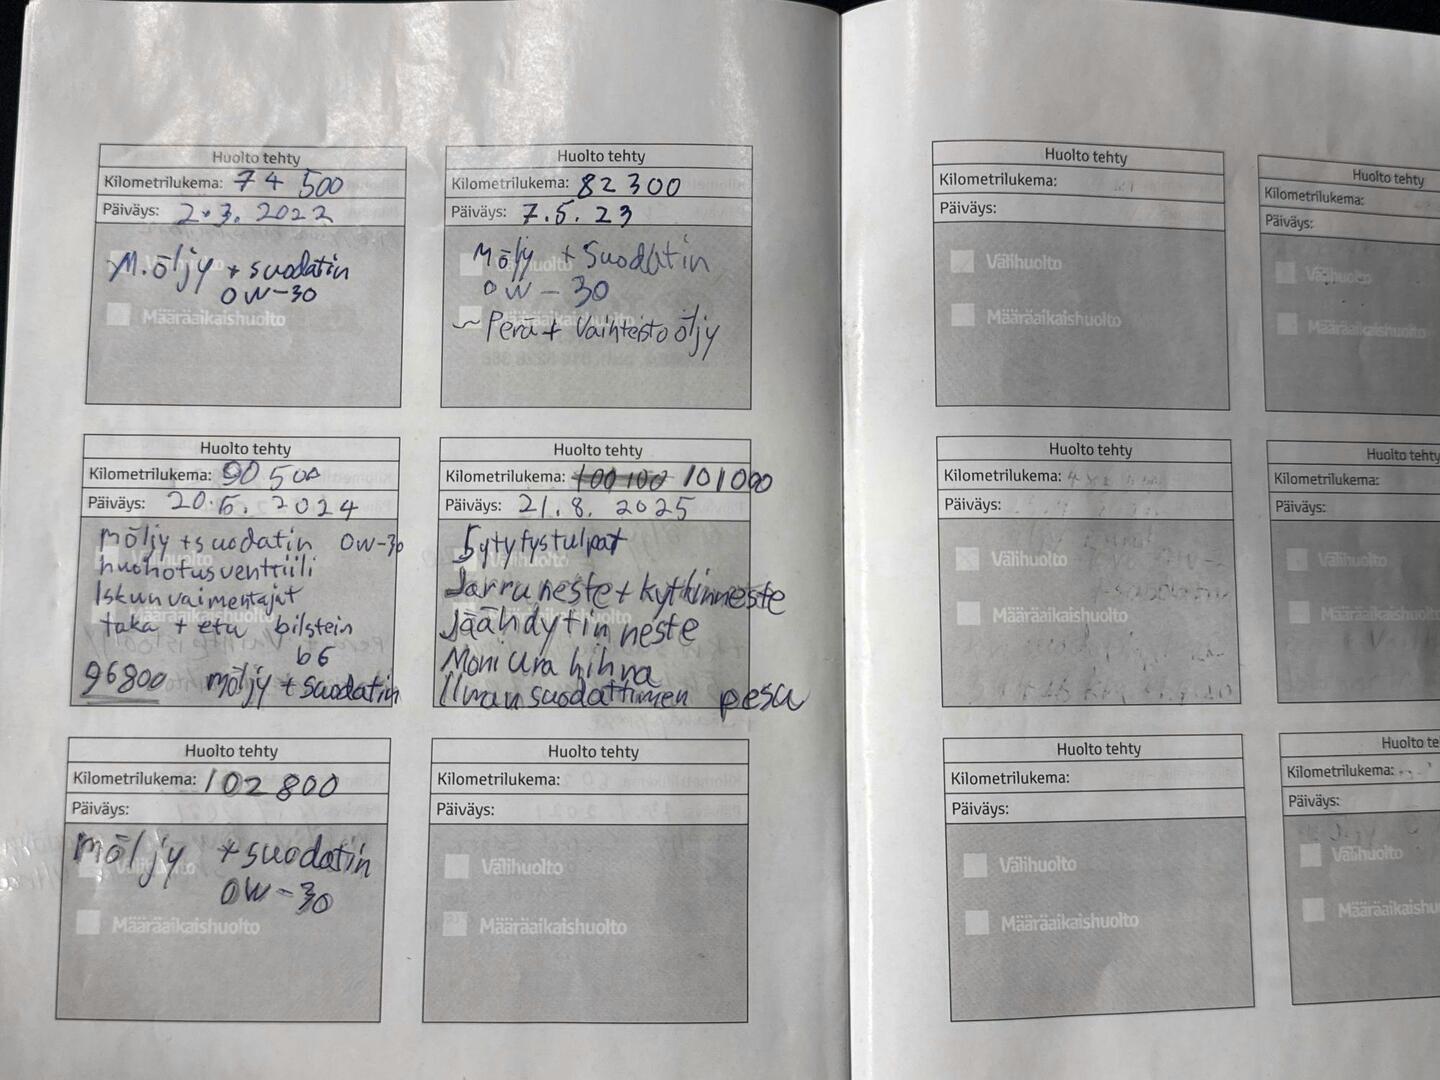 Huolto tehty
Kilometrilukema: 74 500
Päiväys: 2.3. 2022
M.öljy + suodatin
0W-30
Välihuolto
Määräaikaishuolto
Huolto tehty
Kilometrilukema: 82 300
Päiväys: 7.5. 23
Möljy + Suodatin
0W-30
~ Perä + Vaihteisto öljy
Huolto tehty
Kilometrilukema: 90 500
Päiväys: 20.6. 2024
möljy + suodatin 0W-30
huohotusventtiili
Iskunvaimentajat
taka + etu bilstein
b6
96800 möljy + suodatin
Huolto tehty
Kilometrilukema: 100 100 101000
Päiväys: 21.8. 2025
Sytytystulpat
Jarruneste + kytkinneste
Jäähdytin neste
Moniura hihna
Ilmansuodattimen pesu
Huolto tehty
Kilometrilukema: 102 800
Päiväys:
möljy + suodatin
0W-30
Välihuolto
Määräaikaishuolto
Huolto tehty
Kilometrilukema:
Päiväys:
Välihuolto
Määräaikaishuolto
Huolto tehty
Kilometrilukema:
Päiväys:
Välihuolto
Määräaikaishuolto
Huolto tehty
Kilometrilukema:
Päiväys:
Välihuolto
Määräaikaishuolto
Huolto tehty
Kilometrilukema:
Päiväys:
Välihuolto
Määräaikaishuolto
Huolto tehty
Kilometrilukema:
Päiväys:
Välihuolto
Määräaikaishuolto
Huolto tehty
Kilometrilukema:
Päiväys:
Välihuolto
Määräaikaishuolto
Huolto te
Kilometrilukema:
Päiväys:
Välihuolto
Määräaikaishu